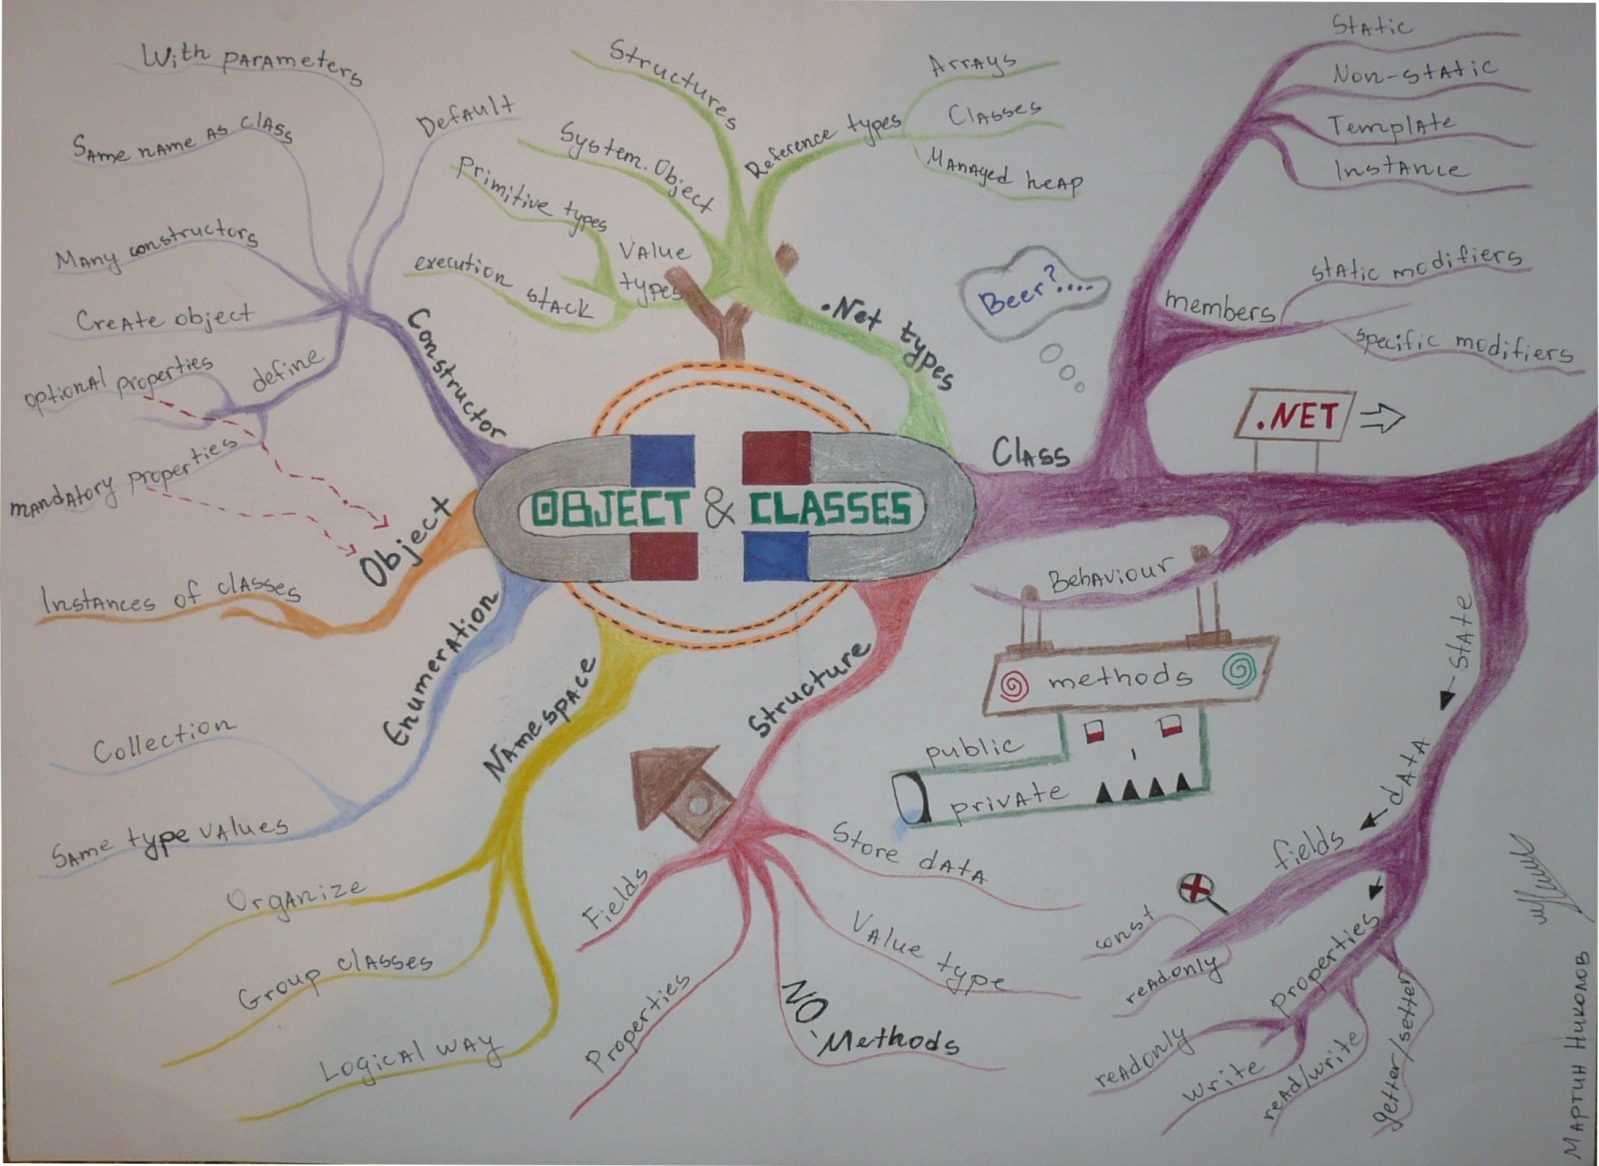 OBJECT & CLASSES
Constructor
With parameters
Same name as class
Default
Many constructors
Create object
define
optional properties
mandatory properties
Object
Instances of classes
Enumeration
Collection
Same type values
Namespace
Organize
Group classes
Logical way
Structure
Fields
Properties
NO-
Methods
Value type
Store data
.Net types
Structures
System.Object
Value
types
primitive types
execution stack
Reference types
Arrays
Classes
Managed heap
Beer?....
Class
Static
Non-static
Template
Instance
members
static modifiers
specific modifiers
.NET
Behaviour
methods
public
private
state
data
fields
const
readonly
Properties
readonly
write
read/write
getter/setter
Мартин Николов